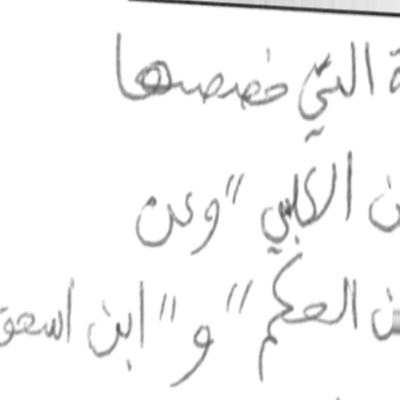 ة التي خصصها
ن الكلبي " وعن
ن الحكم " و " ابن اسحق